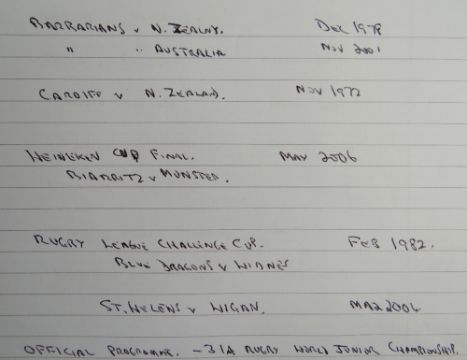 BARBARIANS v N. ZEALND. DEC 1978
" " AUSTRALIA NOV 2001
CARDIFF v N. ZEALAND. NOV 1972
HEINEKEN CUP FINAL. MAY 2006
BIARRITZ v MUNSTER.
RUGBY LEAGUE CHALLENGE CUP. FEB 1982.
BLUE DRAGONS v WIDNES
ST. HELENS v WIGAN. MAR 2004
OFFICIAL PROGRAMME. - IRB RUGBY WORLD JUNIOR CHAMPIONSHIP.